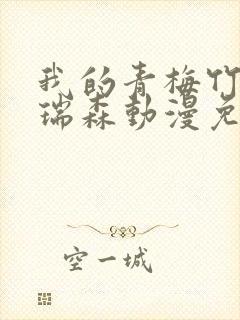 我的青梅竹
瑞森動漫免
空一城